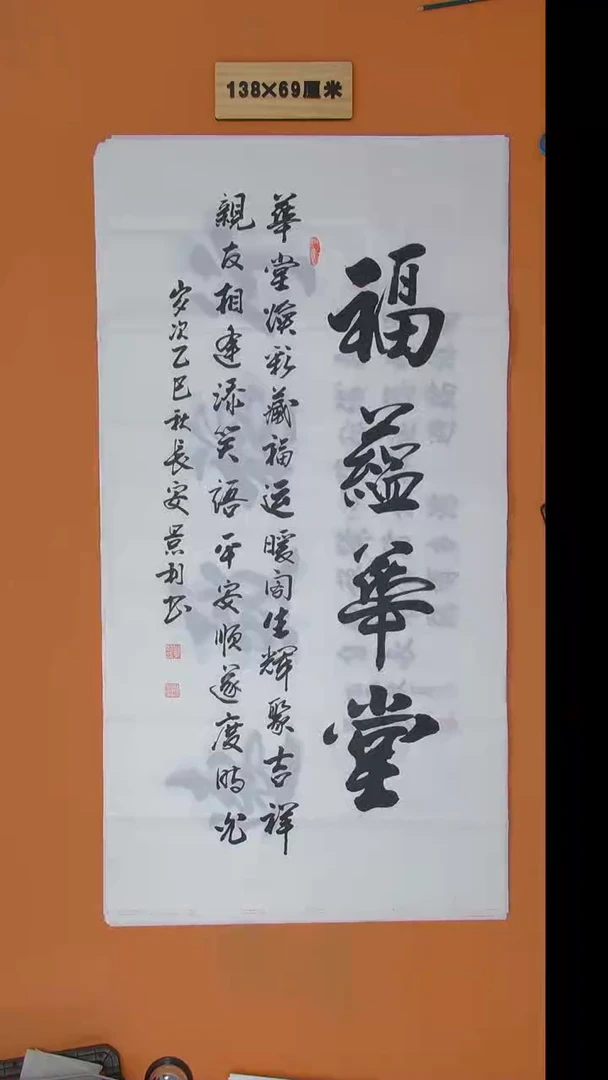 138×69厘米
福蘊華堂
華堂煥彩藏福运暖阁生輝聚吉祥
親友相逢添笑語平安順遂度時光
岁次乙巳秋長安景利书